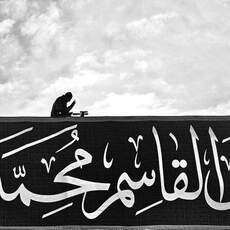 القاسم مُحمّد